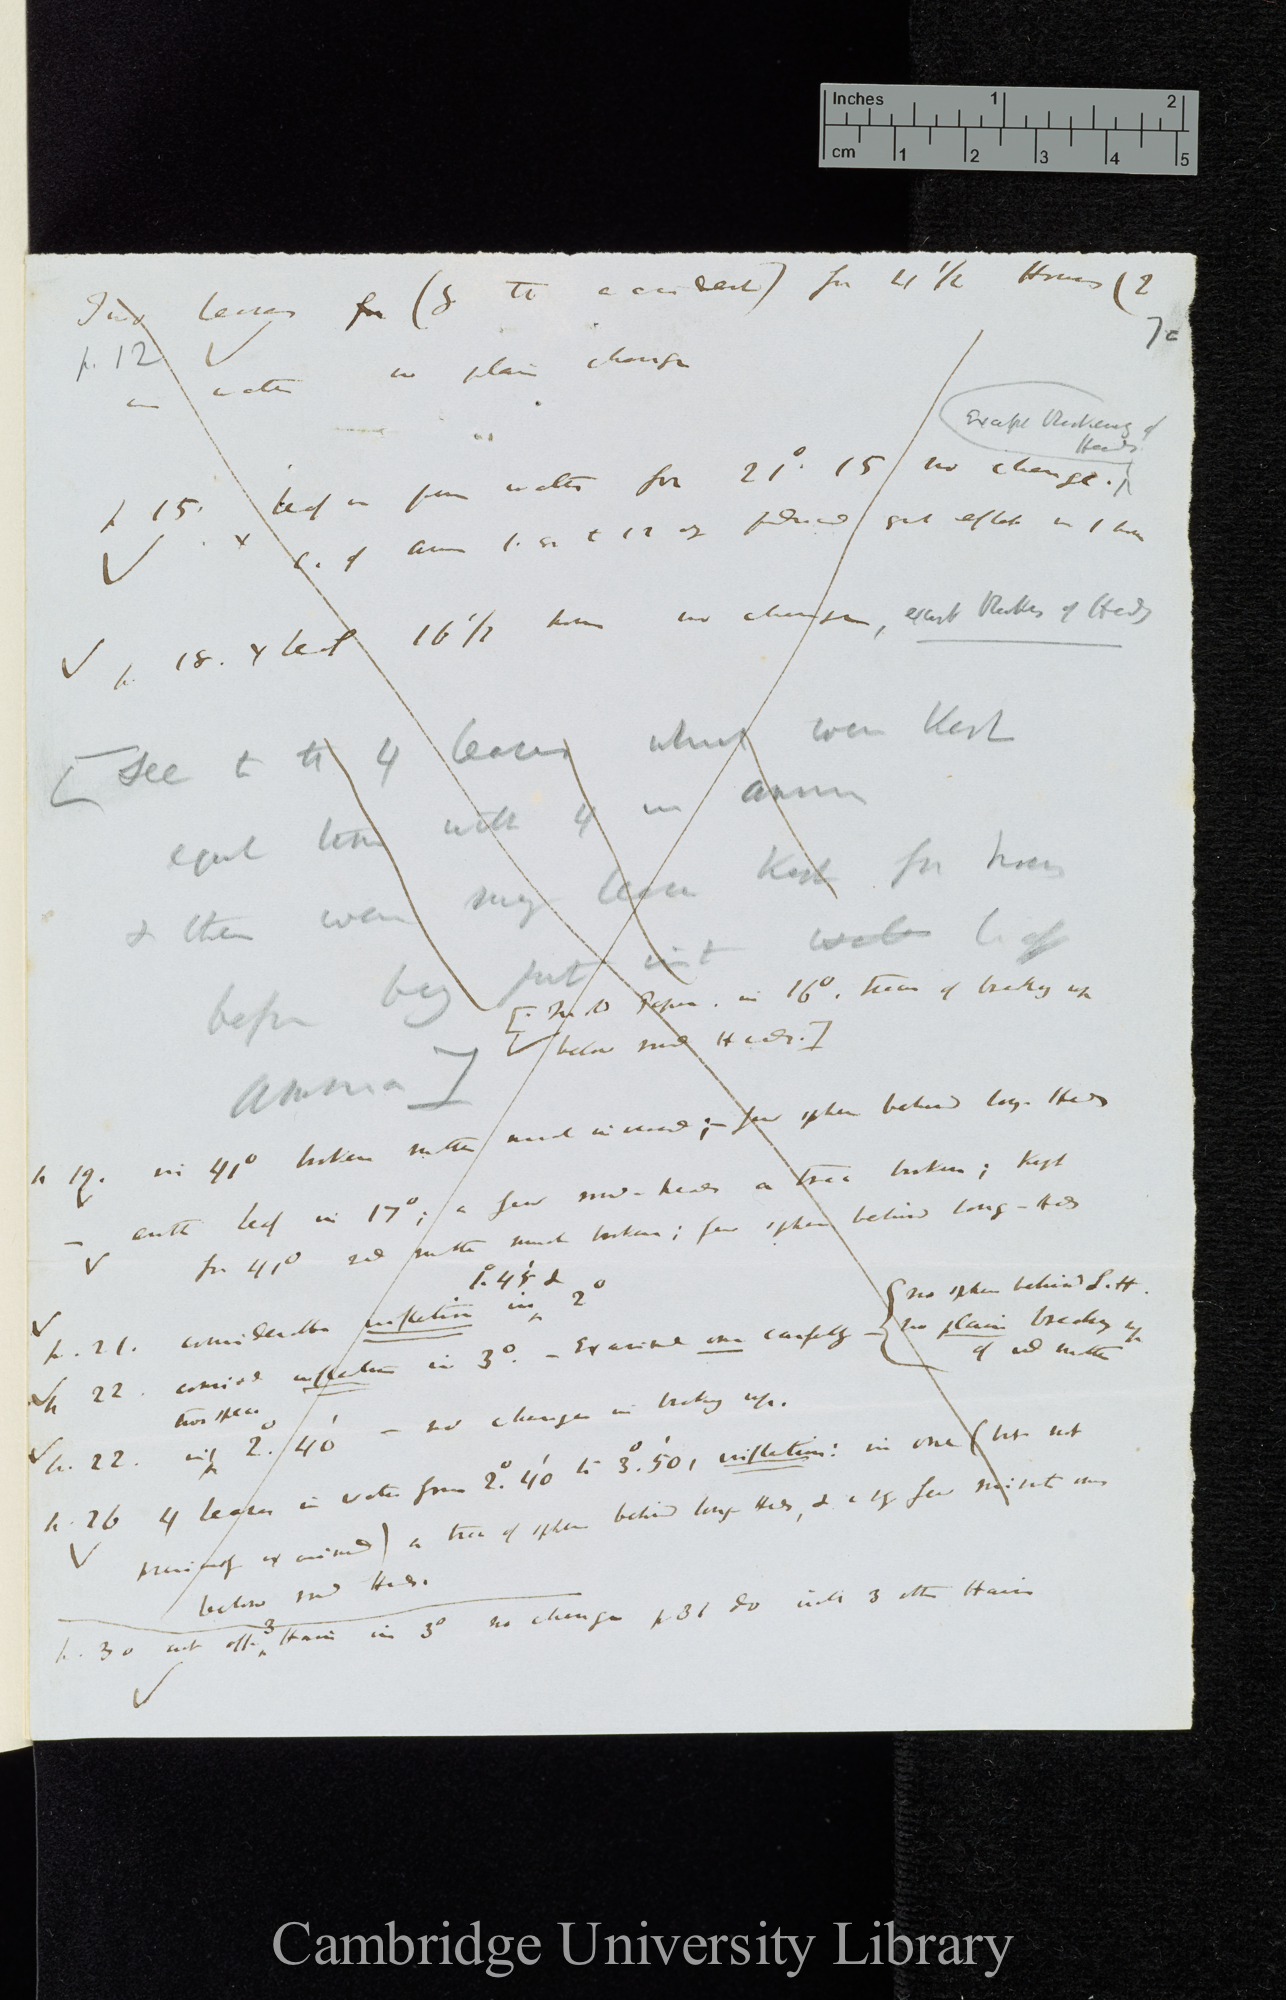 Inches 1 2
cm 1 2 3 4 5
Two leaves for (& to accident) for 4 1/2 Hours (2
7c
p. 12
in water no plain change
Except thickening of
Heads
p 15. leaf in pure water for 21° 15 no change.
of amm 1. gr to 12 oz produced great effect in 1 hour
p. 18. leaf 16 1/2 hours no change, except of Heads
[See to the 4 leaves which were kept
equal time with 4 in ammon
& then were my leaves kept for hours
before being put into water
in 16°. trace of breaking up
below red Heads.]
Ammonia]
p 19. in 41° broken matter much increased; few spheres behind long Heads
another leaf in 17°; a few red-heads a trace broken; kept
for 41° red matter much broken; few spheres behind long-Heads
1°.45' &
p. 21. considerable inflection in 2°
p 22. consid inflection in 3°. - Examined one carefully - { no spheres behind L.H.
no plain breaking up
of red matter
p. 22. in 2°. 40' - no change in breaking up.
p. 26 4 leaves in water from 2°. 40' to 3°.50', inflection: in one (but not
previously examined) a trace of spheres behind long Heads, & a very few minute ones
below red Heads.
p. 30 cut off 3 Hairs in 3° no change p 31 do with 3 other Hairs
Cambridge University Library